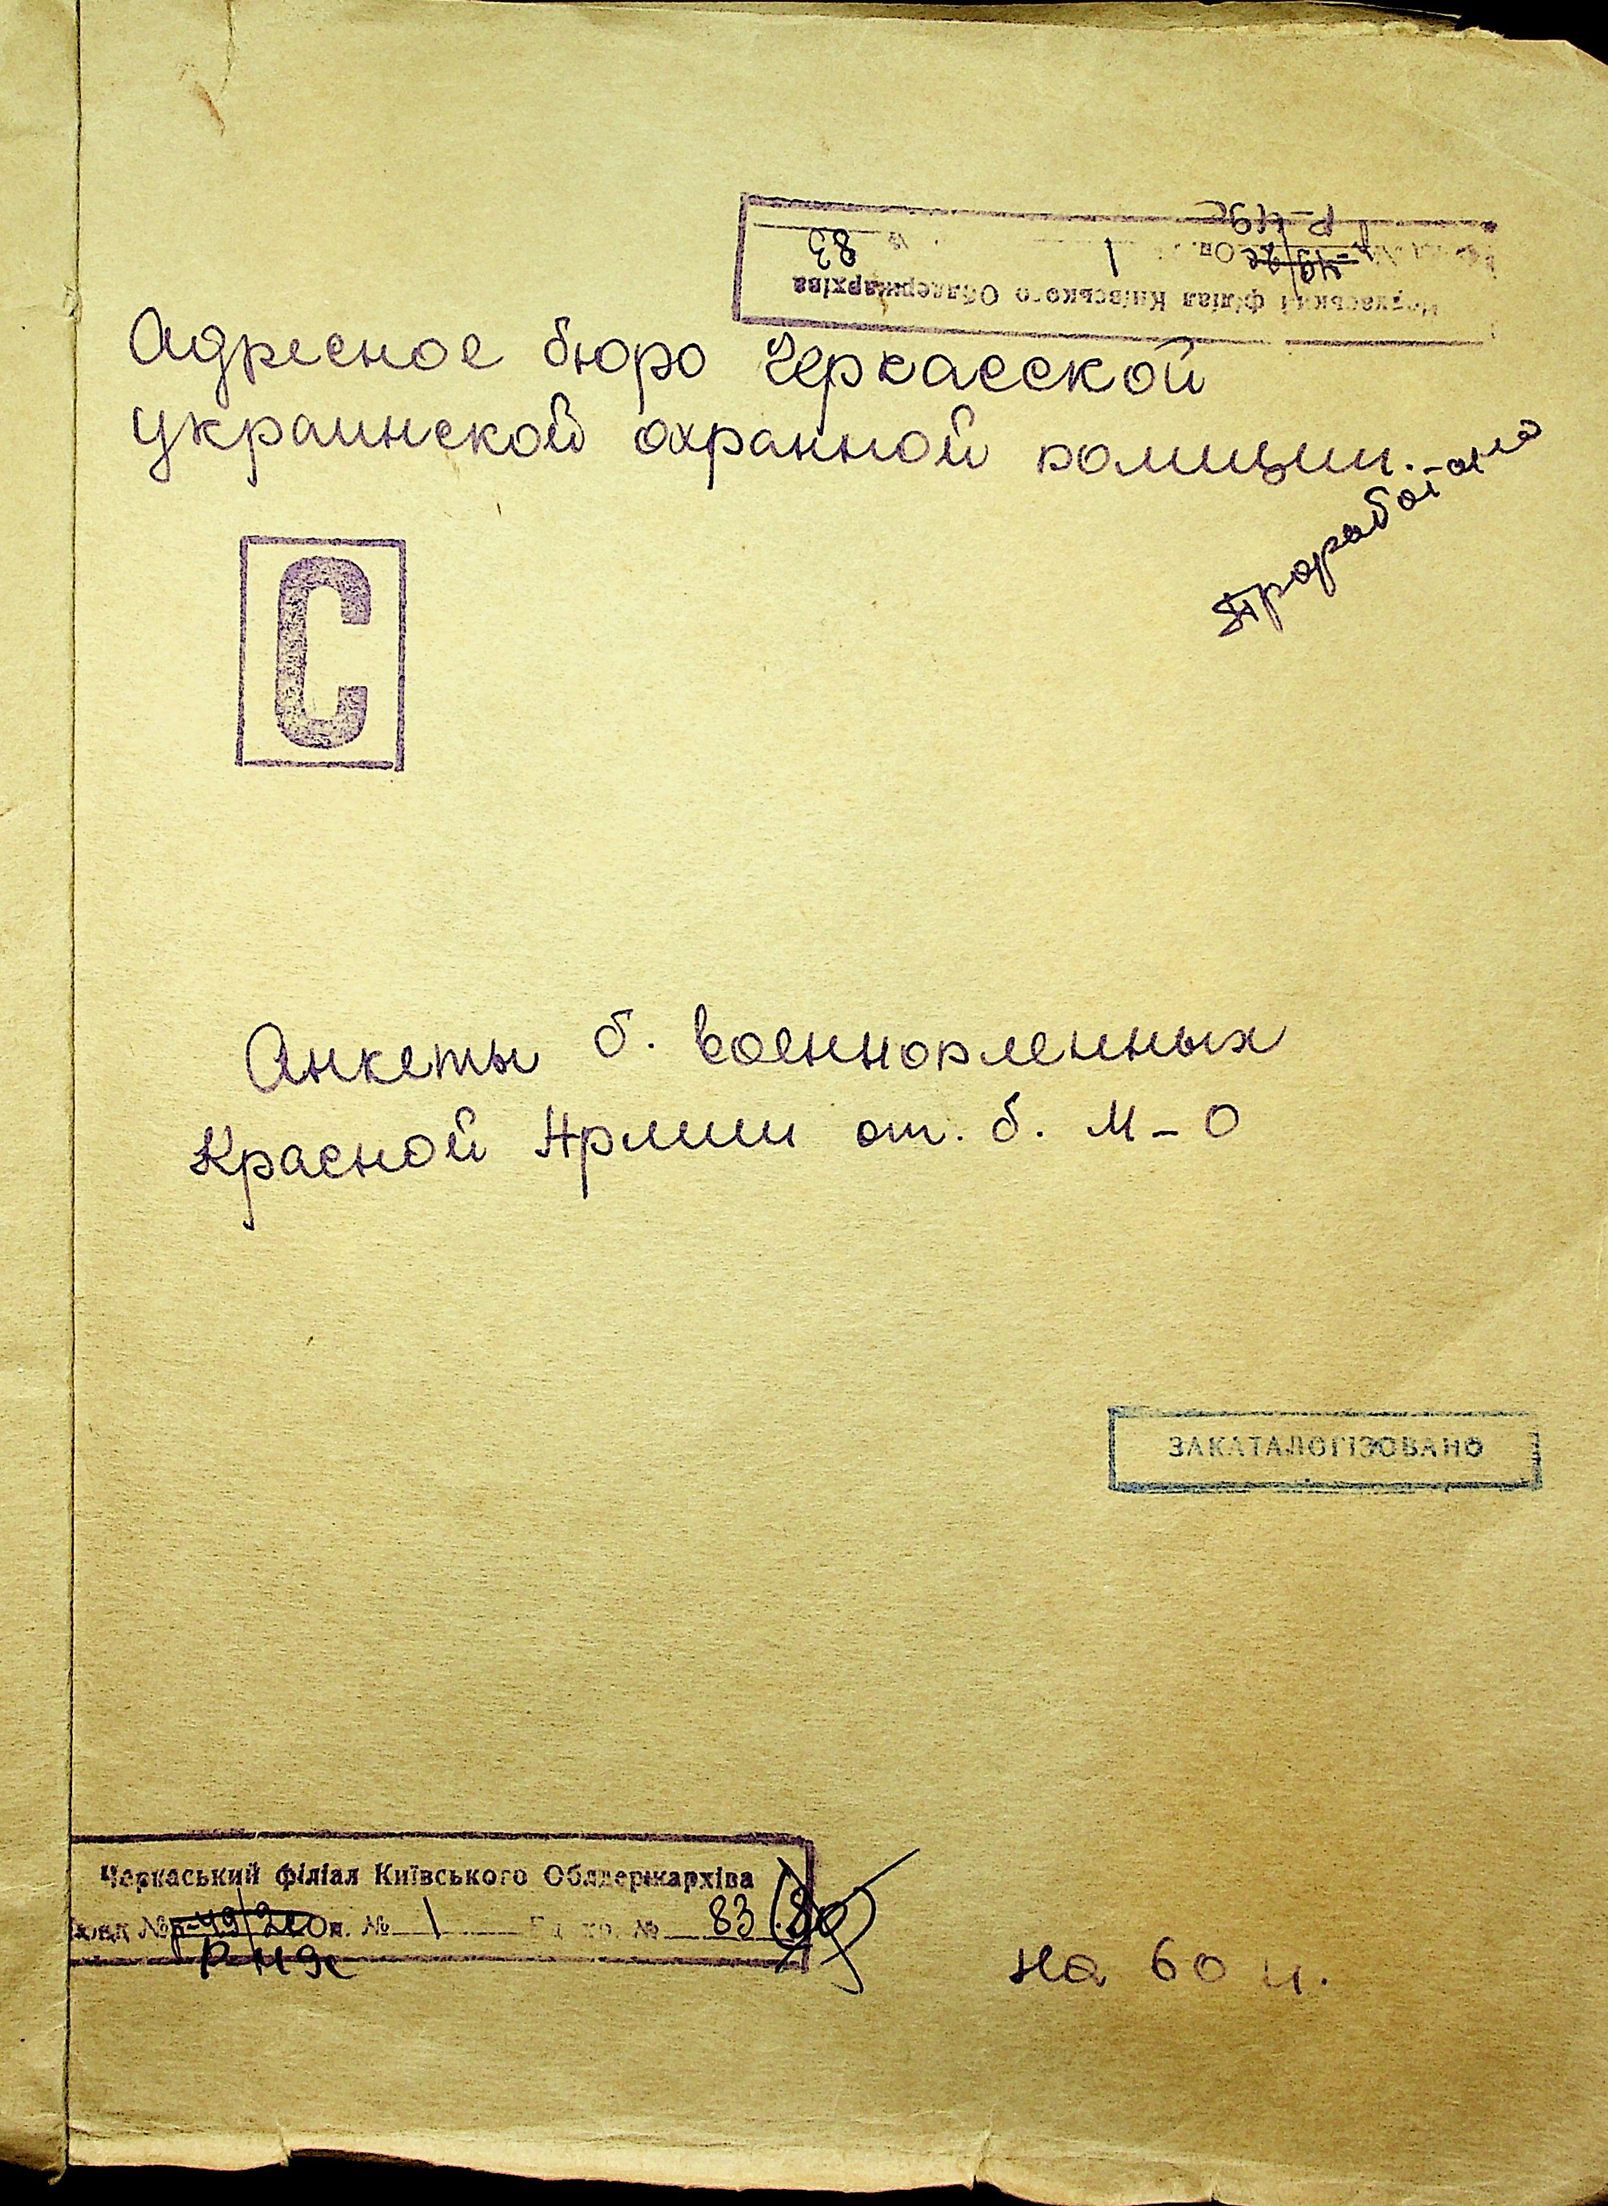 Черкаський філіал Київського Облдержархіва
Р-49с
1 83
Адресное бюро Черкасской
украинской охранной полиции.
проработано
С
Анкеты б. военнопленных
Красной Армии от. б. М-О
ЗАКАТАЛОГІЗОВАНО
Черкаський філіал Київського Облдержархіва
Фонд № Оп. № 1 Од. хр. № 83
на 60 л.